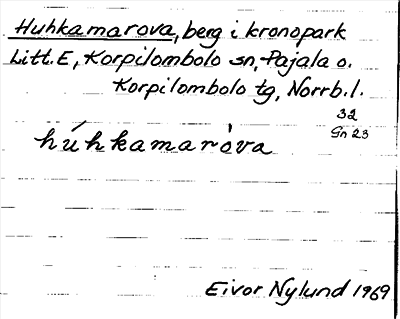 Huhkamarova, berg i kronopark
Litt. E, Korpilombolo sn, Pajala o.
Korpilombolo tg, Norrb. l.
32
Gn 23
húhkamaròva
Eivor Nylund 1969